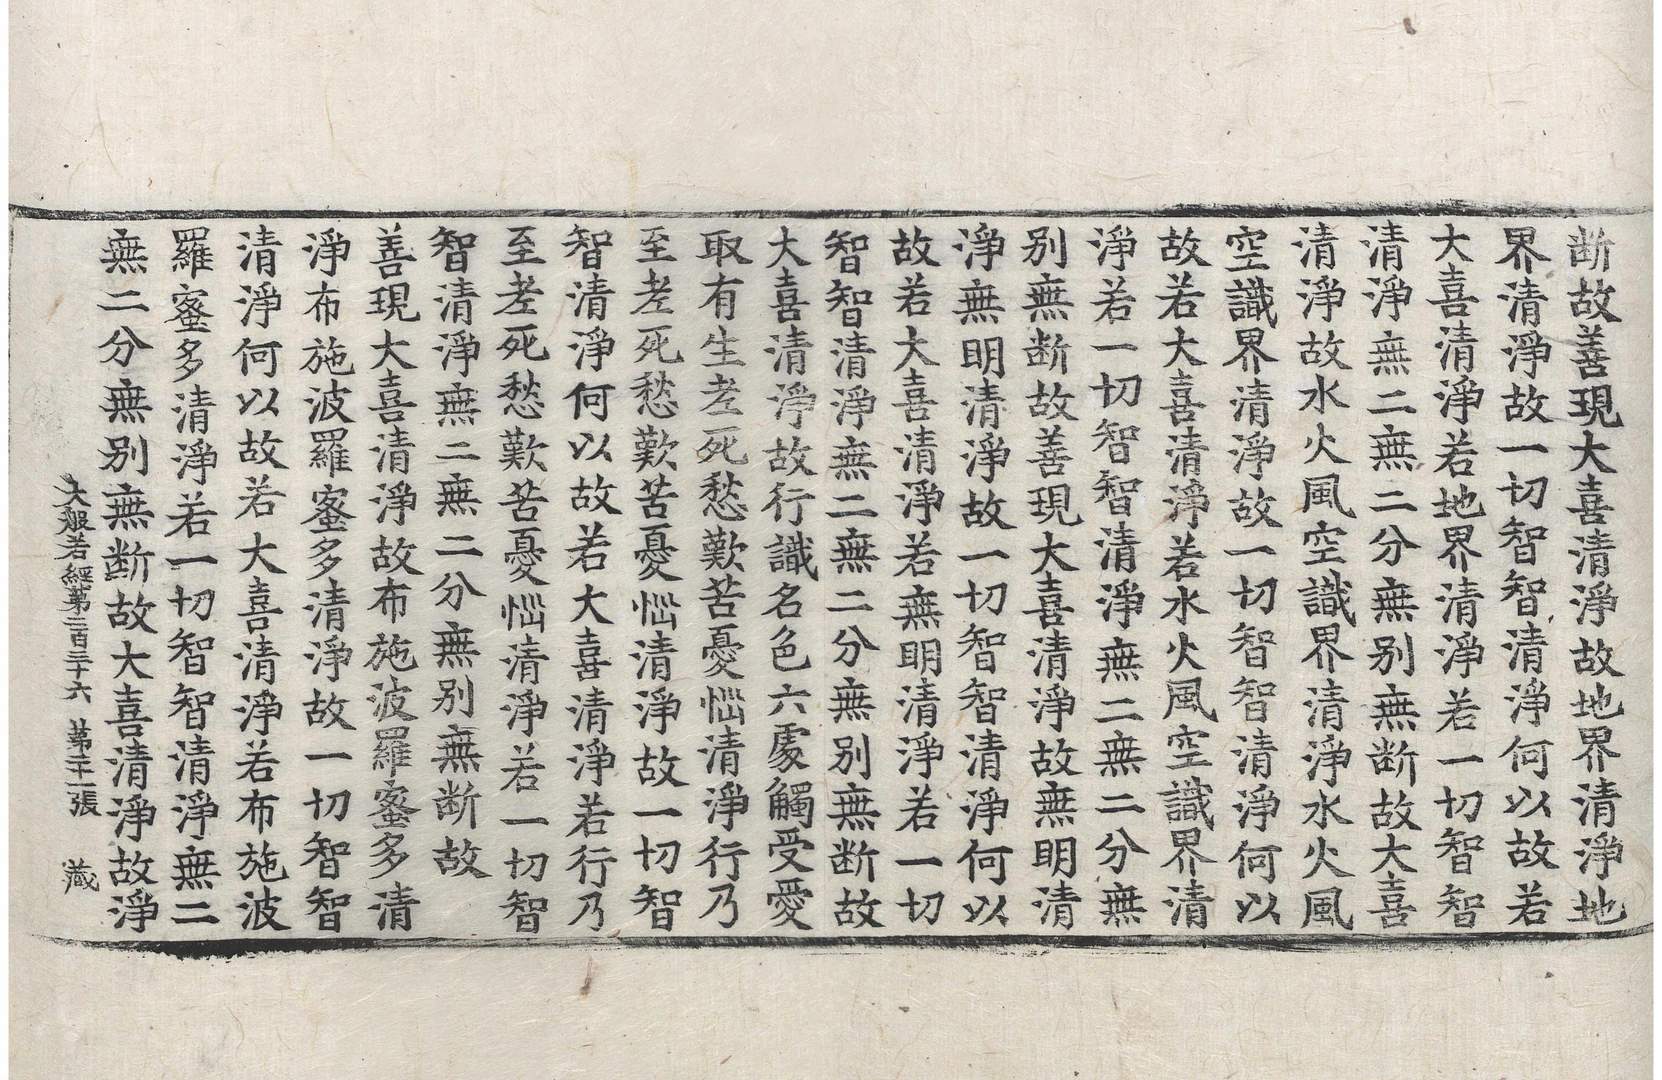 断故善現大喜清淨故地界清淨地
界清淨故一切智智清淨何以故若
大喜清淨若地界清淨若一切智智
清淨無二無二分無别無断故大喜
清淨故水火風空識界清淨水火風
空識界清淨故一切智智清淨何以
故若大喜清淨若水火風空識界清
淨若一切智智清淨無二無二分無
别無断故善現大喜清淨故無明清
淨無明清淨故一切智智清淨何以
故若大喜清淨若無明清淨若一切
智智清淨無二無二分無别無断故
大喜清淨故行識名色六處觸受愛
取有生老死愁歎苦憂惱清淨行乃
至老死愁歎苦憂惱清淨故一切智
智清淨何以故若大喜清淨若行乃
至老死愁歎苦憂惱清淨若一切智
智清淨無二無二分無别無断故
善現大喜清淨故布施波羅蜜多清
淨布施波羅蜜多清淨故一切智智
清淨何以故若大喜清淨若布施波
羅蜜多清淨若一切智智清淨無二
無二分無别無断故大喜清淨故淨
大般若經第二百三十六 第二十一張 藏